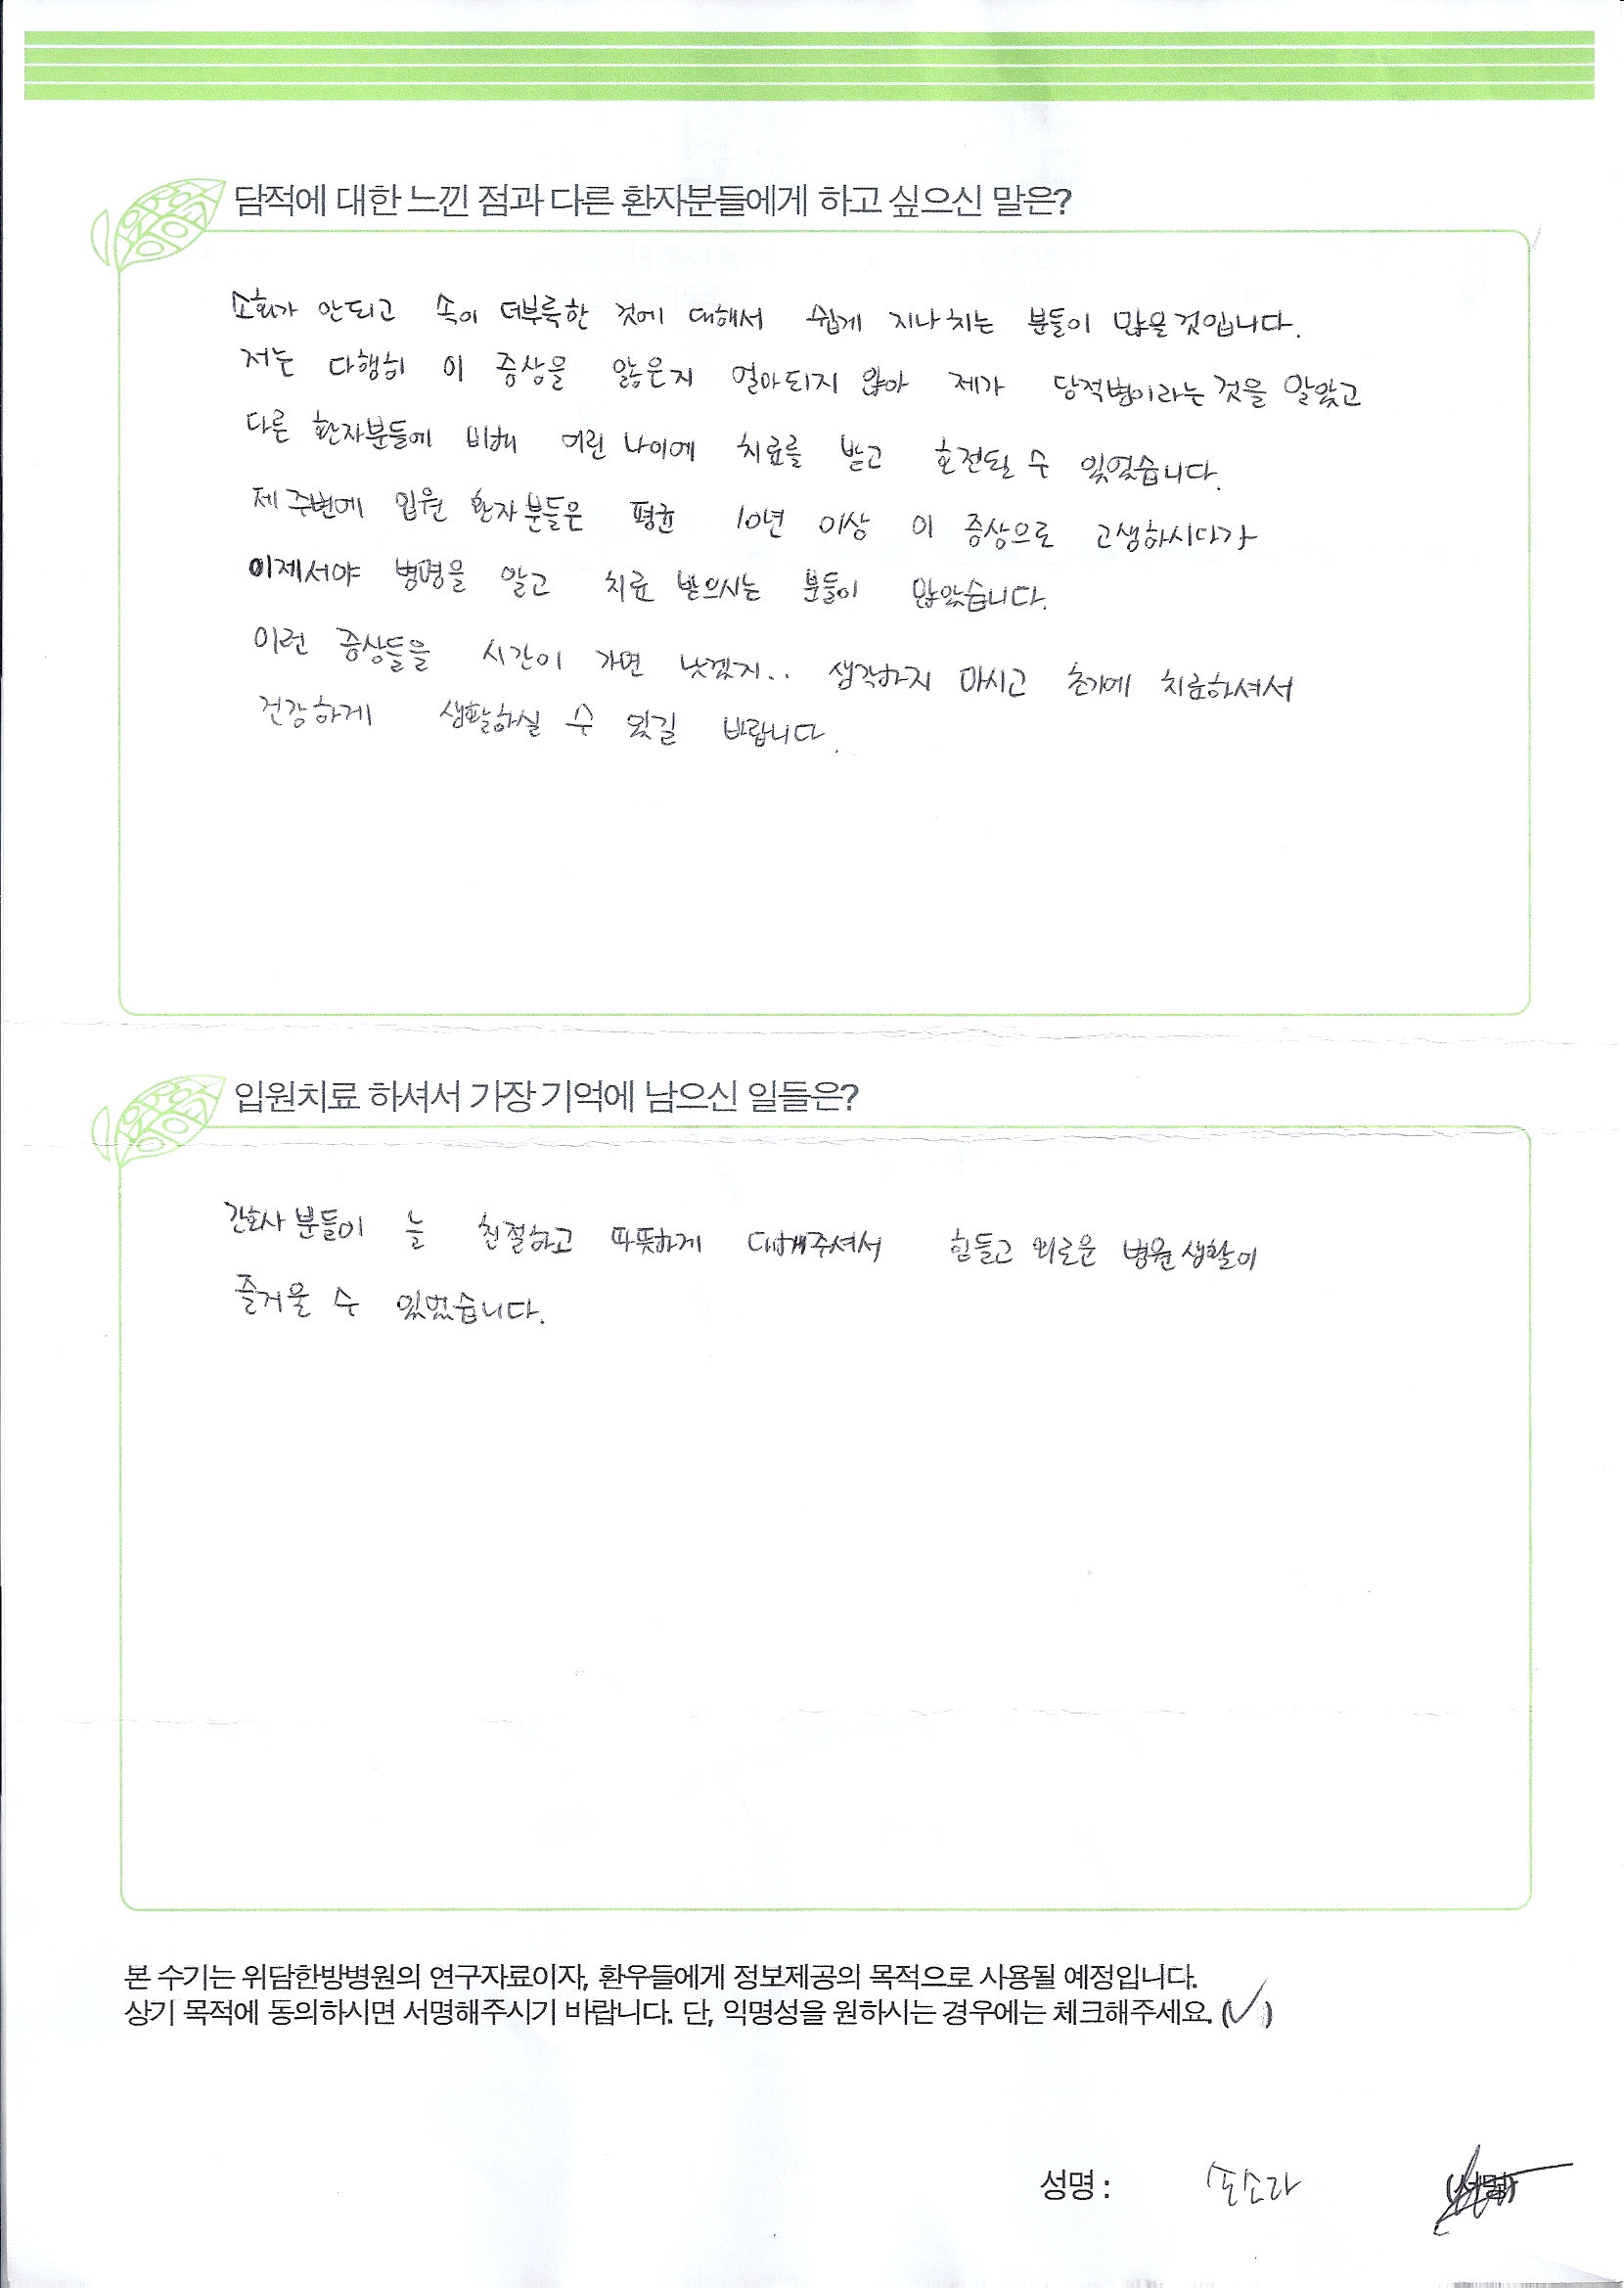 담적에 대한 느낀 점과 다른 환자분들에게 하고 싶으신 말은?
소화가 안되고 속이 더부룩한 것에 대해서 쉽게 지나치는 분들이 많을 것입니다.
저는 다행히 이 증상을 앓은지 얼아되지 않아 제가 담적병이라는 것을 알았고
다른 환자분들에 비해 어린 나이에 치료를 받고 호전될 수 있었습니다.
제 주변에 입원 환자분들은 평균 10년 이상 이 증상으로 고생하시다가
이제서야 병명을 알고 치료 받으시는 분들이 많았습니다.
이런 증상들을 시간이 가면 낫겠지.. 생각하지 마시고 초기에 치료하셔서
건강하게 생활하실 수 있길 바랍니다.
입원치료 하셔서 가장 기억에 남으신 일들은?
간호사 분들이 늘 친절하고 따뜻하게 대해주셔서 힘들고 외로운 병원 생활이
즐거울 수 있었습니다.
본 수기는 위담한방병원의 연구자료이자, 환우들에게 정보제공의 목적으로 사용될 예정입니다.
상기 목적에 동의하시면 서명해주시기 바랍니다. 단, 익명성을 원하시는 경우에는 체크해주세요. (✓)
성명 : 손소라 (서명)